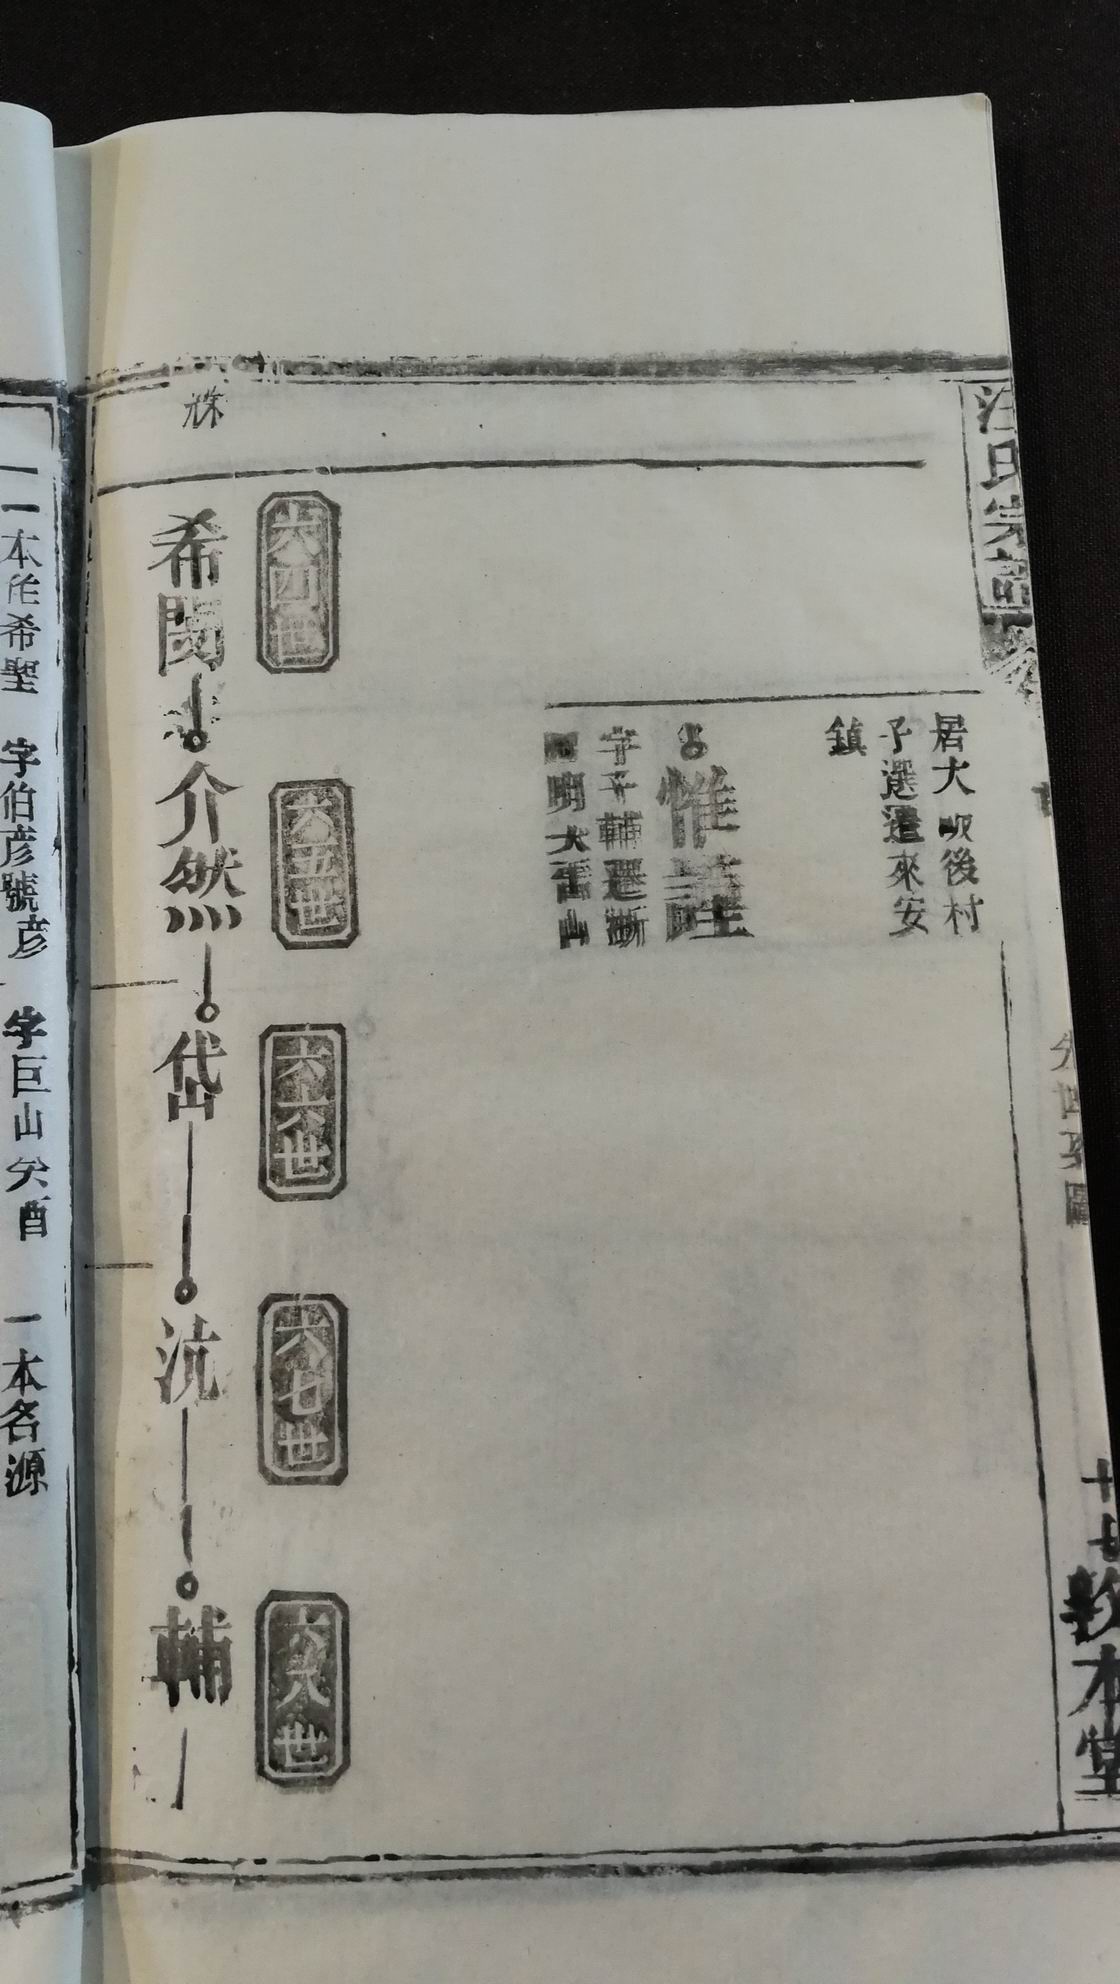 汪氏宗譜
十七
敦本堂
居大
後村
子選遷來安
鎮
惟謹
字子輔遷浙
明大雷山
六四世
六五世
六六世
六七世
六八世
希閔
介然
岱
沆
輔
一本作希聖
字伯彦號彦
字巨山癸酉
一本名源